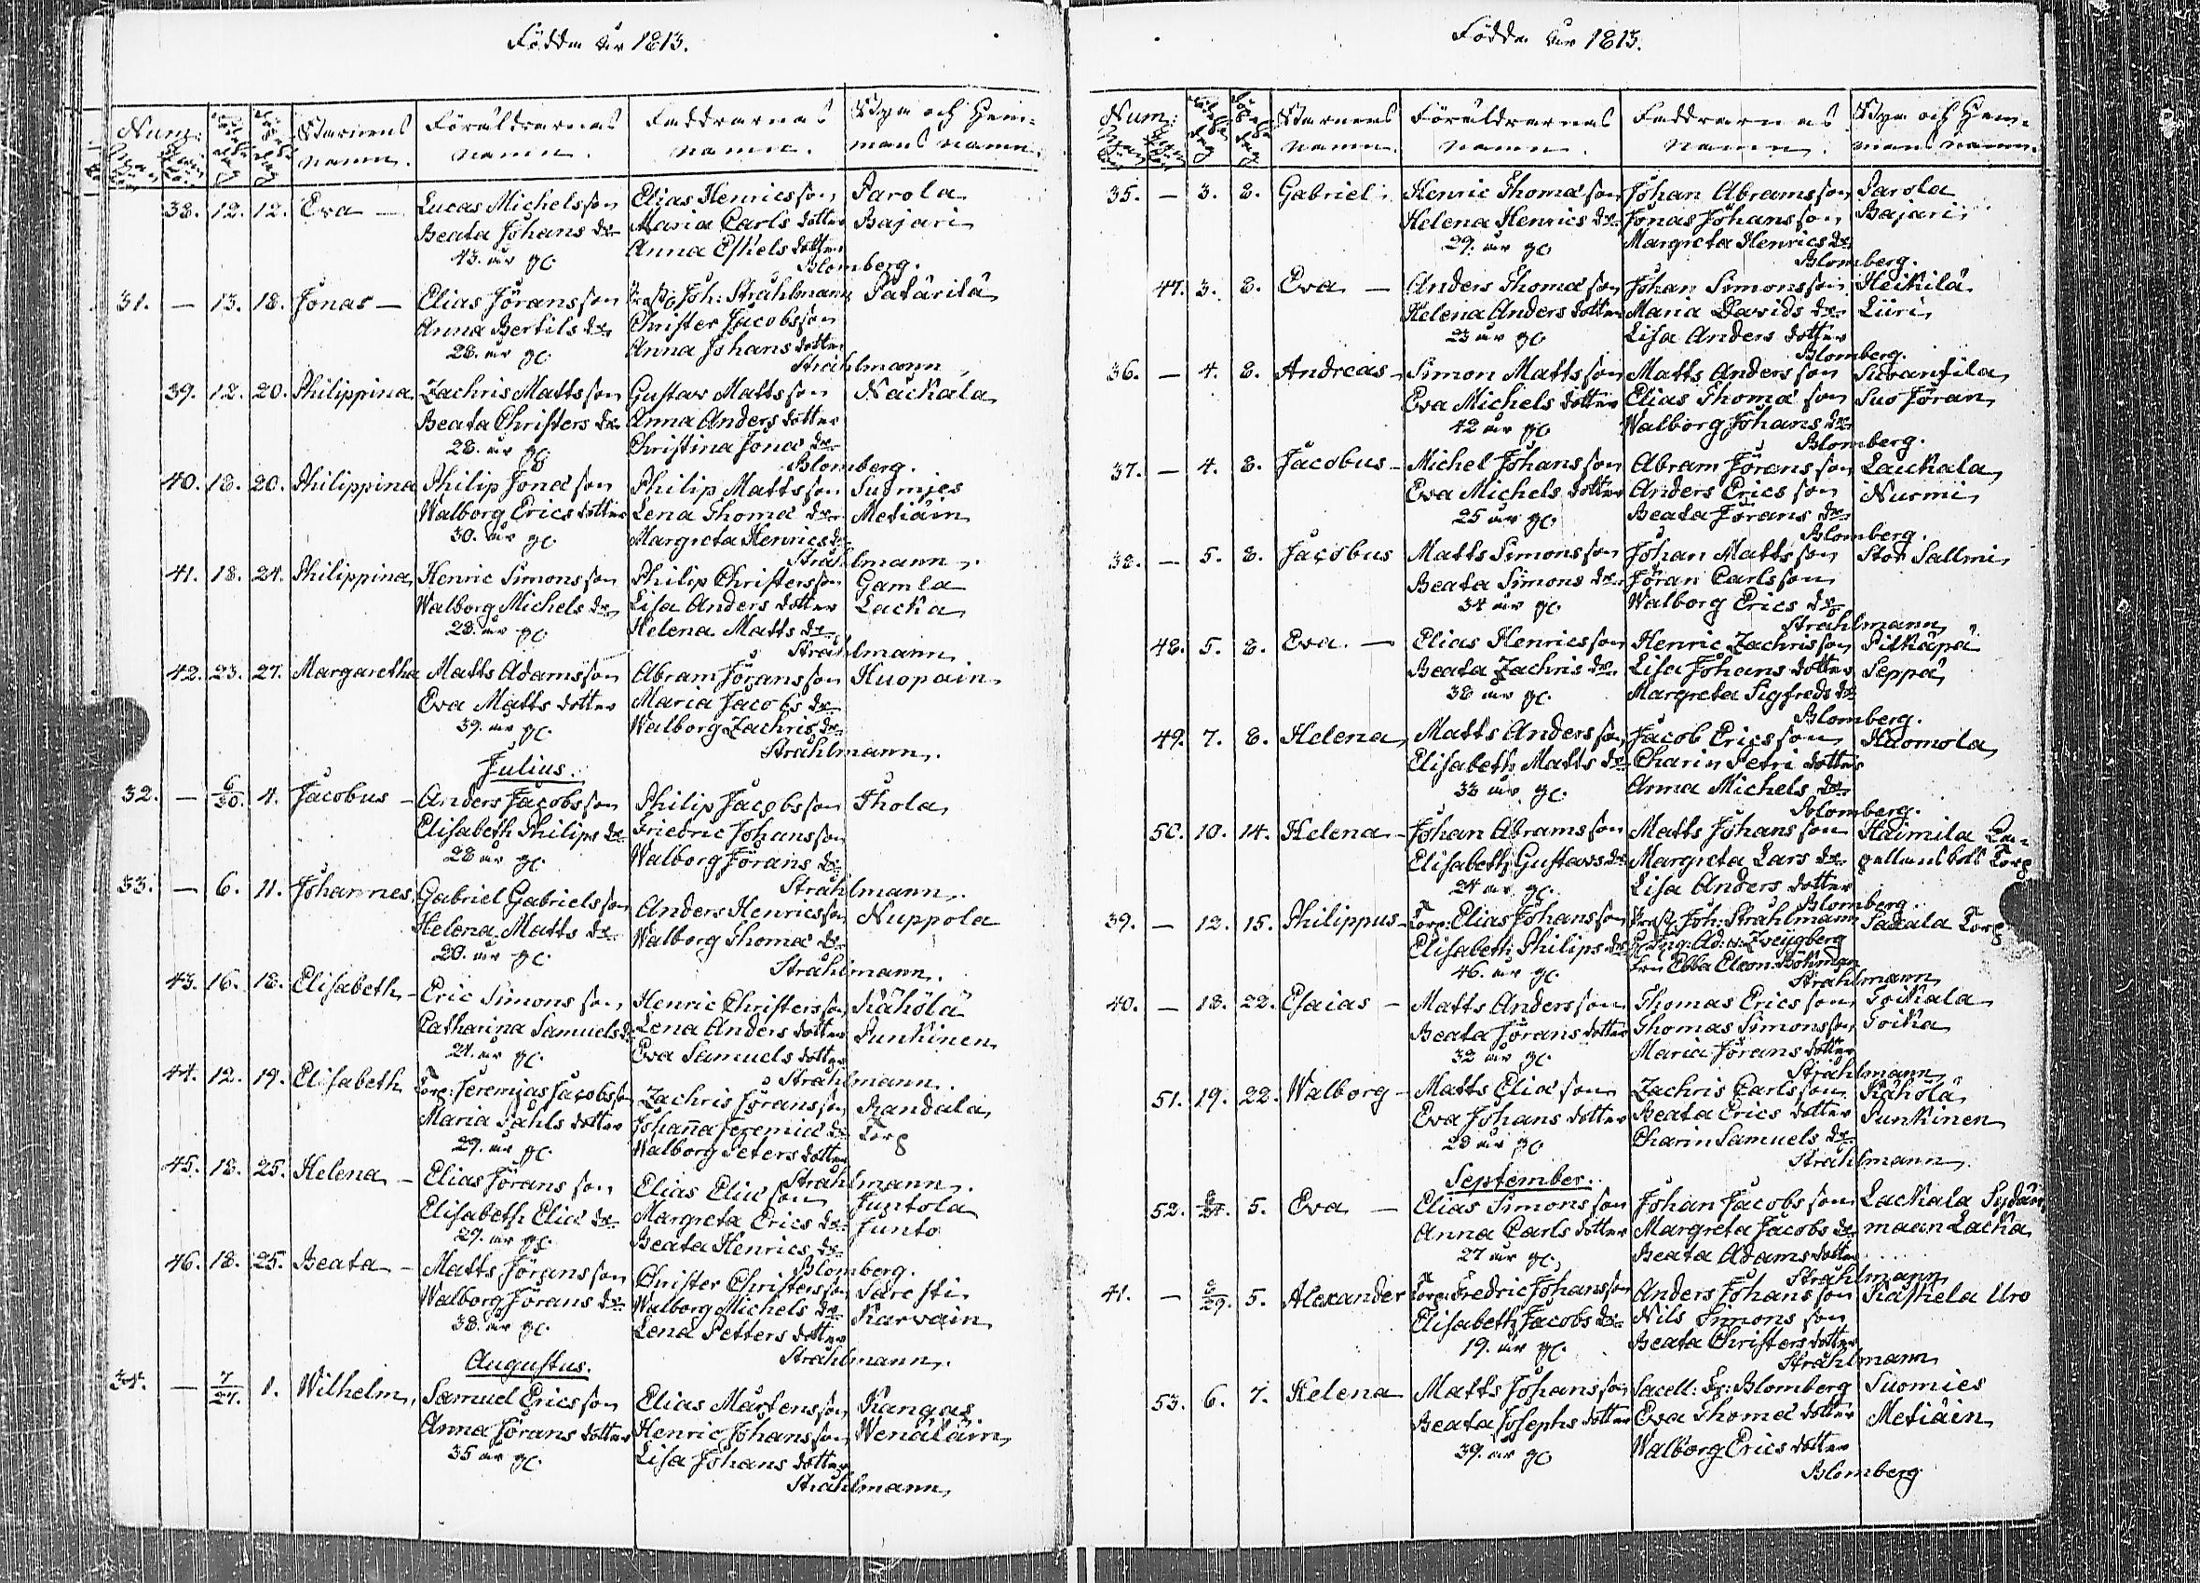 Födde år 1813.
Num:
Barnens namn.
Föräldrarnas namn.
Faddrarnas namn.
Bya och Hemmans namn.
38. 12. 12. Eva — Lucas Michelsson Elias Henricsson Parola
Beata Johans dr Maria Carls dotter Bajari
43. år gl. Anna Eskels dotter
Blomberg.
31. — 13. 18. Jonas — Elias Göransson Joh: Stråhlmann Patärilä
Anna Bertils dr Christer Jacobsson
28. år gl. Anna Johans dotter
Strahlmann
39. 18. 20. Philippina Zachris Mattsson Gustav Mattsson Nackala
Beata Christers dr Anna Anders dotter
28. år gl. Christina Jona dr
Blomberg.
40. 18. 20. Philippina Philip Jona son Philip Mattsson Suomies
Walborg Erics dotter Lena Thoma dr Metiäin
30. år gl. Margreta Henrics dr
Strahlmann.
41. 18. 24. Philippina Henric Simonsson Philip Christersson Gamla
Walborg Michels dr Lisa Anders dotter Lacka
28. år gl. Helena Matts dr
Strahlmann.
42. 23. 27. Margaretha Matts Adamsson Abram Göransson Kuopain
Eva Matts dotter Maria Jacobs dr
39. år gl. Walborg Zachris dr
Strahlmann.
Julius.
32. — 6/30. 4. Jacobus — Anders Jacobsson Philip Jacobsson Thola
Elisabeth Philips dr Friedric Johansson
28 år gl. Walborg Görans dr
Strahlmann.
33. — 6. 11. Johannes Gabriel Gabrielsson Anders Henricsson Nuppola
Helena Matts dr Walborg Thoma dr
20. år gl.
Strahlmann.
43. 16. 18. Elisabeth — Eric Simonsson Henric Christersson Kähölä
Catharina Samuels dr Lena Anders dotter Punkinen
24. år gl. Eva Samuels dotter
Strahlmann.
44. 12. 19. Elisabeth Torp: Jeremias Jacobsson Zachris Göransson Randala
Maria Pahls dotter Johaña Jeremia dr Torp
29. år gl. Walborg Peters dotter
Strahlmann.
45. 18. 25. Helena — Elias Göransson Elias Elia son Juntola
Elisabeth Elia dr Margreta Erics dr Junto
29. år gl. Beata Henrics dr
Blomberg.
46. 18. 25. Beata — Matts Göransson Christer Christersson Säresti
Walborg Görans dr Walborg Michels dr Karvain
38. år gl. Lena Petters dotter
Strahlmann.
Augustus.
34. — 7/27. 1. Wilhelm Samuel Ericsson Elias Mårtensson Kangas
Anna Görans dotter Henric Johansson Wenäläin
35 år gl. Lisa Johans dotter
Strahlmann
Födde år 1813.
Num:
Barnens namn.
Föräldrarnas namn.
Faddrarnas namn.
Bya och Hemmans namn.
35. — 3. 8. Gabriel Henric Thoma son Johan Abramsson Parola
Helena Henrics dr Jonas Johansson Bajari
29. år gl. Margreta Henrics dr
Blomberg.
47. 3. 8. Eva — Anders Thoma son Johan Simonsson Heikilä
Helena Anders dotter Maria Davids dr Liiri
23 år gl. Lisa Anders dotter
Blomberg.
36. — 4. 8. Andreas Simon Mattsson Matts Andersson Suvantila
Eva Michels dotter Elias Thoma son Suo Jöran
42 år gl. Walborg Johans dr
Blomberg.
37. — 4. 8. Jacobus — Michel Johansson Abram Göransson Laukala
Eva Michels dotter Anders Ericsson Nurmi
25 år gl. Beata Görans dr
Blomberg.
38. — 5. 8. Jacobus Matts Simonsson Johan Mattsson Stor Sallmi
Beata Simons dr Jöran Carlsson
34 år gl. Walborg Erics dr
Strahlmann
48. 5. 8. Eva — Elias Henricsson Henric Zachrisson Pitkäpä
Beata Zachris dr Lisa Johans dotter Seppä
38 år gl. Margreta Sigfreds dr
Blomberg.
49. 7. 8. Helena Matts Andersson Jacob Ericsson Kuomola
Elisabeth Matts dr Charin Petri dotter
33 år gl. Anna Michels dr
Blomberg.
50. 10. 14. Helena — Johan Abramsson Matts Johansson Haimila
Elisabeth Gustavs dr Margreta Lars dr Torp
24 år gl. Lisa Anders dotter
Blomberg.
39. — 12. 15. Philippus — Torp: Elias Johansson Joh: Strahlmann Sakala Torp
Elisabeth Philips dr Ing: Ad: v: Zveÿgberg
46. år gl. fru Ebba Eleon: Böhman
Strahlmann
40. — 18. 22. Esaias — Matts Andersson Thomas Ericsson Toikala
Beata Görans dotter Thomas Simonsson Toika
32 år gl. Maria Görans dotter
Strahlmann
51. 19. 22. Walborg — Matts Elia son Zachris Carlsson Kähölä
Eva Johans dotter Beata Erics dotter Punkinen
28 år gl. Charin Samuels dr
Strahlmann
September.
52. 8/27. 5. Eva — Elias Simonsson Johan Jacobsson Lackala Sydän
Anna Carls dotter Margreta Jacobs dr maan Lacka
27 år gl. Beata Adams dotter
Strahlmann
41. — 8/29. 5. Alexander Torp: Fredric Johansson Anders Johansson Kaskela Uro
Elisabeth Jacobs dr Nils Simonsson
19. år gl. Beata Christers dotter
Strahlmann
53. 6. 7. Helena Matts Johansson Sacell: Gr: Blomberg Suomies
Beata Josephs dotter Eva Thoma dotter Metiäin
39. år gl. Walborg Erics dotter
Blomberg